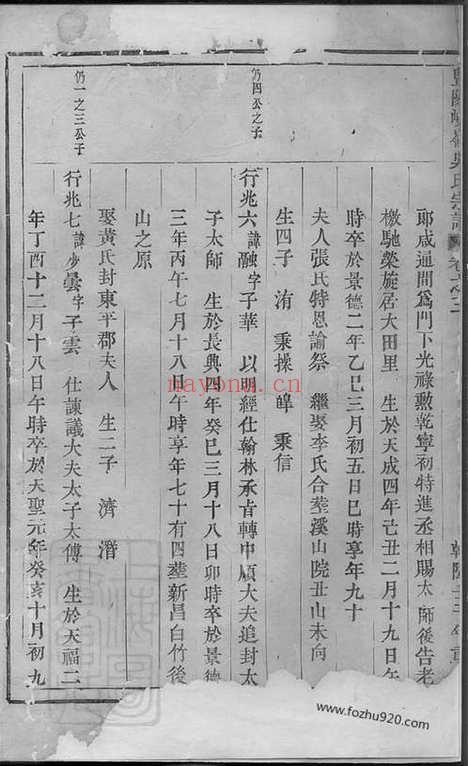 吳氏宗譜
郞咸通間爲門下光祿勲乾寧初特進丞相賜太師後告老
檄馳榮旋居大田里　生於天成四年己丑二月十九日午
時卒於景德二年乙巳三月初五日巳時享年九十
夫人張氏特恩諭祭　繼娶李氏合塟溪山院丑山未向
生四子　洧　秉操　皡　秉信
仍四公之子
行兆六諱融字子華　以明經仕翰林承旨轉中順大夫追封太
子太師　生於長興四年癸巳三月十八日卯時卒於景德
三年丙午七月十八日午時享年七十有四塟新昌白竹後
山之原
娶黃氏封東平郡夫人　生二子　濟　潛
仍一之三公子
行兆七諱少曇字子雲　仕諫議大夫太子太傅　生於天福二
年丁酉十二月十八日午時卒於天聖元年癸亥十月初九
nayona.cn
www.fozhu920.com